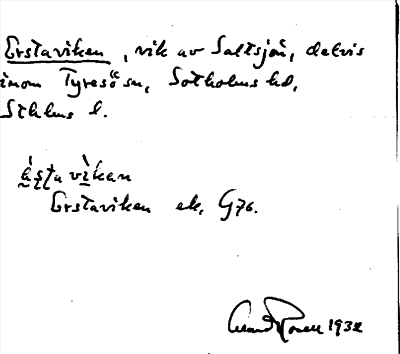 Erstaviken, vik av Saltsjön, delvis
inom Tyresö sn, Sotholms hd,
Sthlms l.
ásta vìkan
Erstaviken ek, G76.
1932